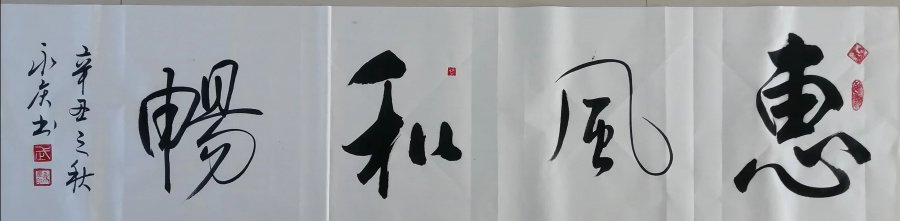 惠風和暢
辛丑之秋
永庆书